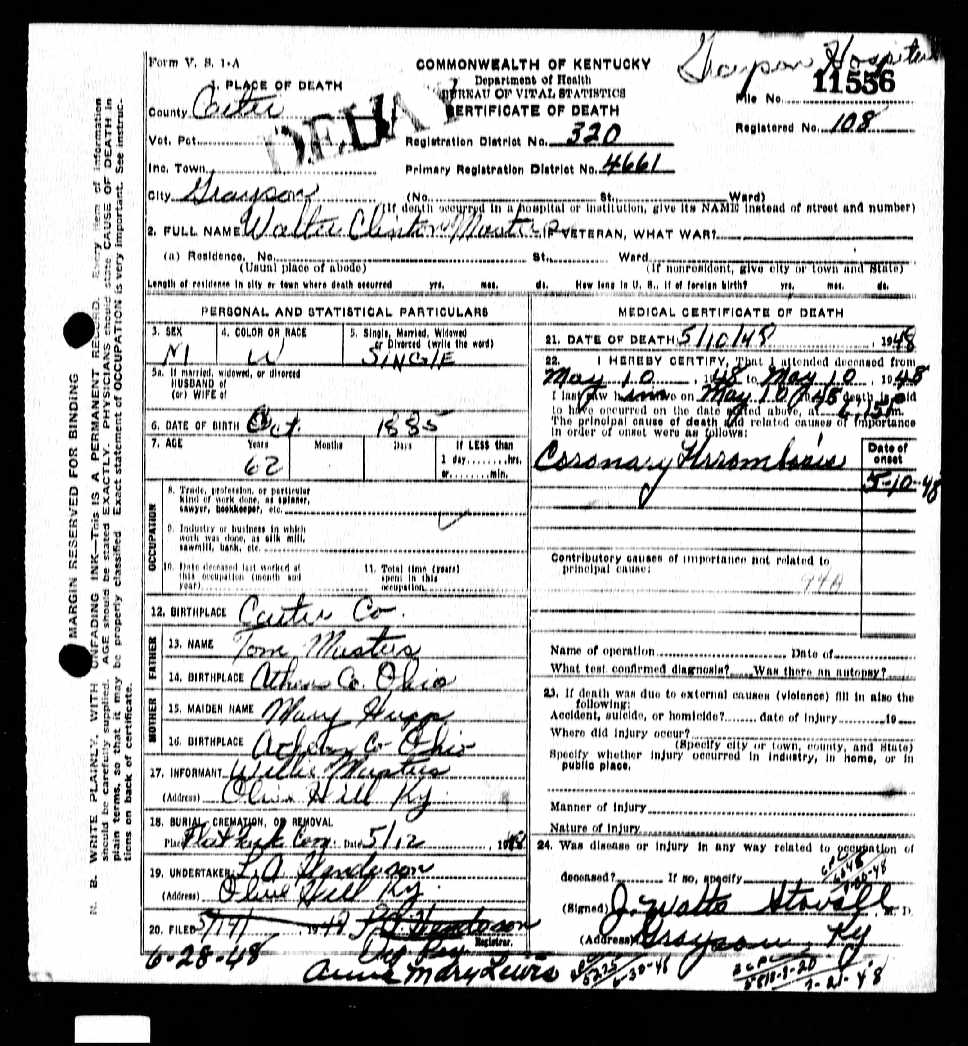 Grayson Hospital
Form V. S. 1-A
COMMONWEALTH OF KENTUCKY
Department of Health
BUREAU OF VITAL STATISTICS
CERTIFICATE OF DEATH
DELAY
File No. 11556
Registered No. 108
1. PLACE OF DEATH
County Carter
Vot. Pct.
Registration District No. 320
Inc. Town
Primary Registration District No. 4661
City Grayson (No. St. Ward)
(If death occurred in a hospital or institution, give its NAME instead of street and number)
2. FULL NAME Walter Clinton Masters IF VETERAN, WHAT WAR?
(a) Residence. No. St., Ward.
(Usual place of abode) (If nonresident, give city or town and State)
Length of residence in city or town where death occurred yrs. mos. ds. How long in U. S., if of foreign birth? yrs. mos. ds.
PERSONAL AND STATISTICAL PARTICULARS
3. SEX M
4. COLOR OR RACE W
5. Single, Married, Widowed or Divorced (write the word) SINGLE
5a. If married, widowed, or divorced
HUSBAND of
(or) WIFE of
6. DATE OF BIRTH Oct. 1885
7. AGE Years Months Days If LESS than
62 1 day, hrs.
or min.
OCCUPATION
8. Trade, profession, or particular
kind of work done, as spinner,
sawyer, bookkeeper, etc.
9. Industry or business in which
work was done, as silk mill,
sawmill, bank, etc.
10. Date deceased last worked at
this occupation (month and
year)
11. Total time (years)
spent in this
occupation
12. BIRTHPLACE Carter Co.
FATHER
13. NAME Tom Masters
14. BIRTHPLACE Athens Co. Ohio
MOTHER
15. MAIDEN NAME Mary Hupp
16. BIRTHPLACE Athens Co Ohio
17. INFORMANT Willie Masters
(Address) Olive Hill Ky
18. BURIAL, CREMATION, OR REMOVAL
Place Flat Fork Cem Date 5/12, 1948
19. UNDERTAKER Henderson
(Address) Olive Hill Ky.
20. FILED 5/19/ 1948 Henderson
Registrar.
6-28-48
Anna Mary Lewis
MEDICAL CERTIFICATE OF DEATH
21. DATE OF DEATH 5/10/48, 1948
22. I HEREBY CERTIFY, That I attended deceased from
May 10, 1948 to May 10, 1948
I last saw him on May 10 1948 death is said
to have occurred on the date stated above, at 6:15 m.
The principal cause of death and related causes of importance
in order of onset were as follows:
Date of onset
Coronary Thrombosis
5-10-48
Contributory causes of importance not related to
principal cause:
94A
Name of operation Date of
What test confirmed diagnosis? Was there an autopsy?
23. If death was due to external causes (violence) fill in also the
following:
Accident, suicide, or homicide? date of injury 19
Where did injury occur?
(Specify city or town, county, and State)
Specify whether injury occurred in industry, in home, or in
public place.
Manner of Injury
Nature of Injury
24. Was disease or injury in any way related to occupation of
deceased? If so, specify
(Signed) J. Watts Stovall, M. D.
(Address) Grayson, Ky
6-30-48
7-21-48
MARGIN RESERVED FOR BINDING
N. B. WRITE PLAINLY, WITH UNFADING INK—THIS IS A PERMANENT RECORD. Every item of information
should be carefully supplied. AGE should be stated EXACTLY. PHYSICIANS should state CAUSE OF DEATH in
plain terms, so that it may be properly classified. Exact statement of OCCUPATION is very important. See instruc-
tions on back of certificate.